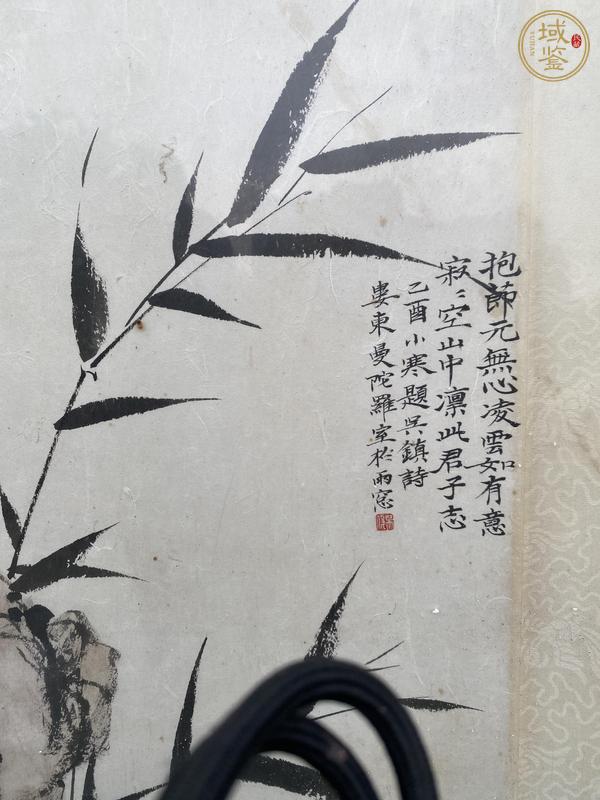 抱節元無心凌雲如有意
寂〻空山中凛此君子志
乙酉小寒題吳鎮詩
婁東曼陀羅室於雨窓
域鑒
YUJIAN